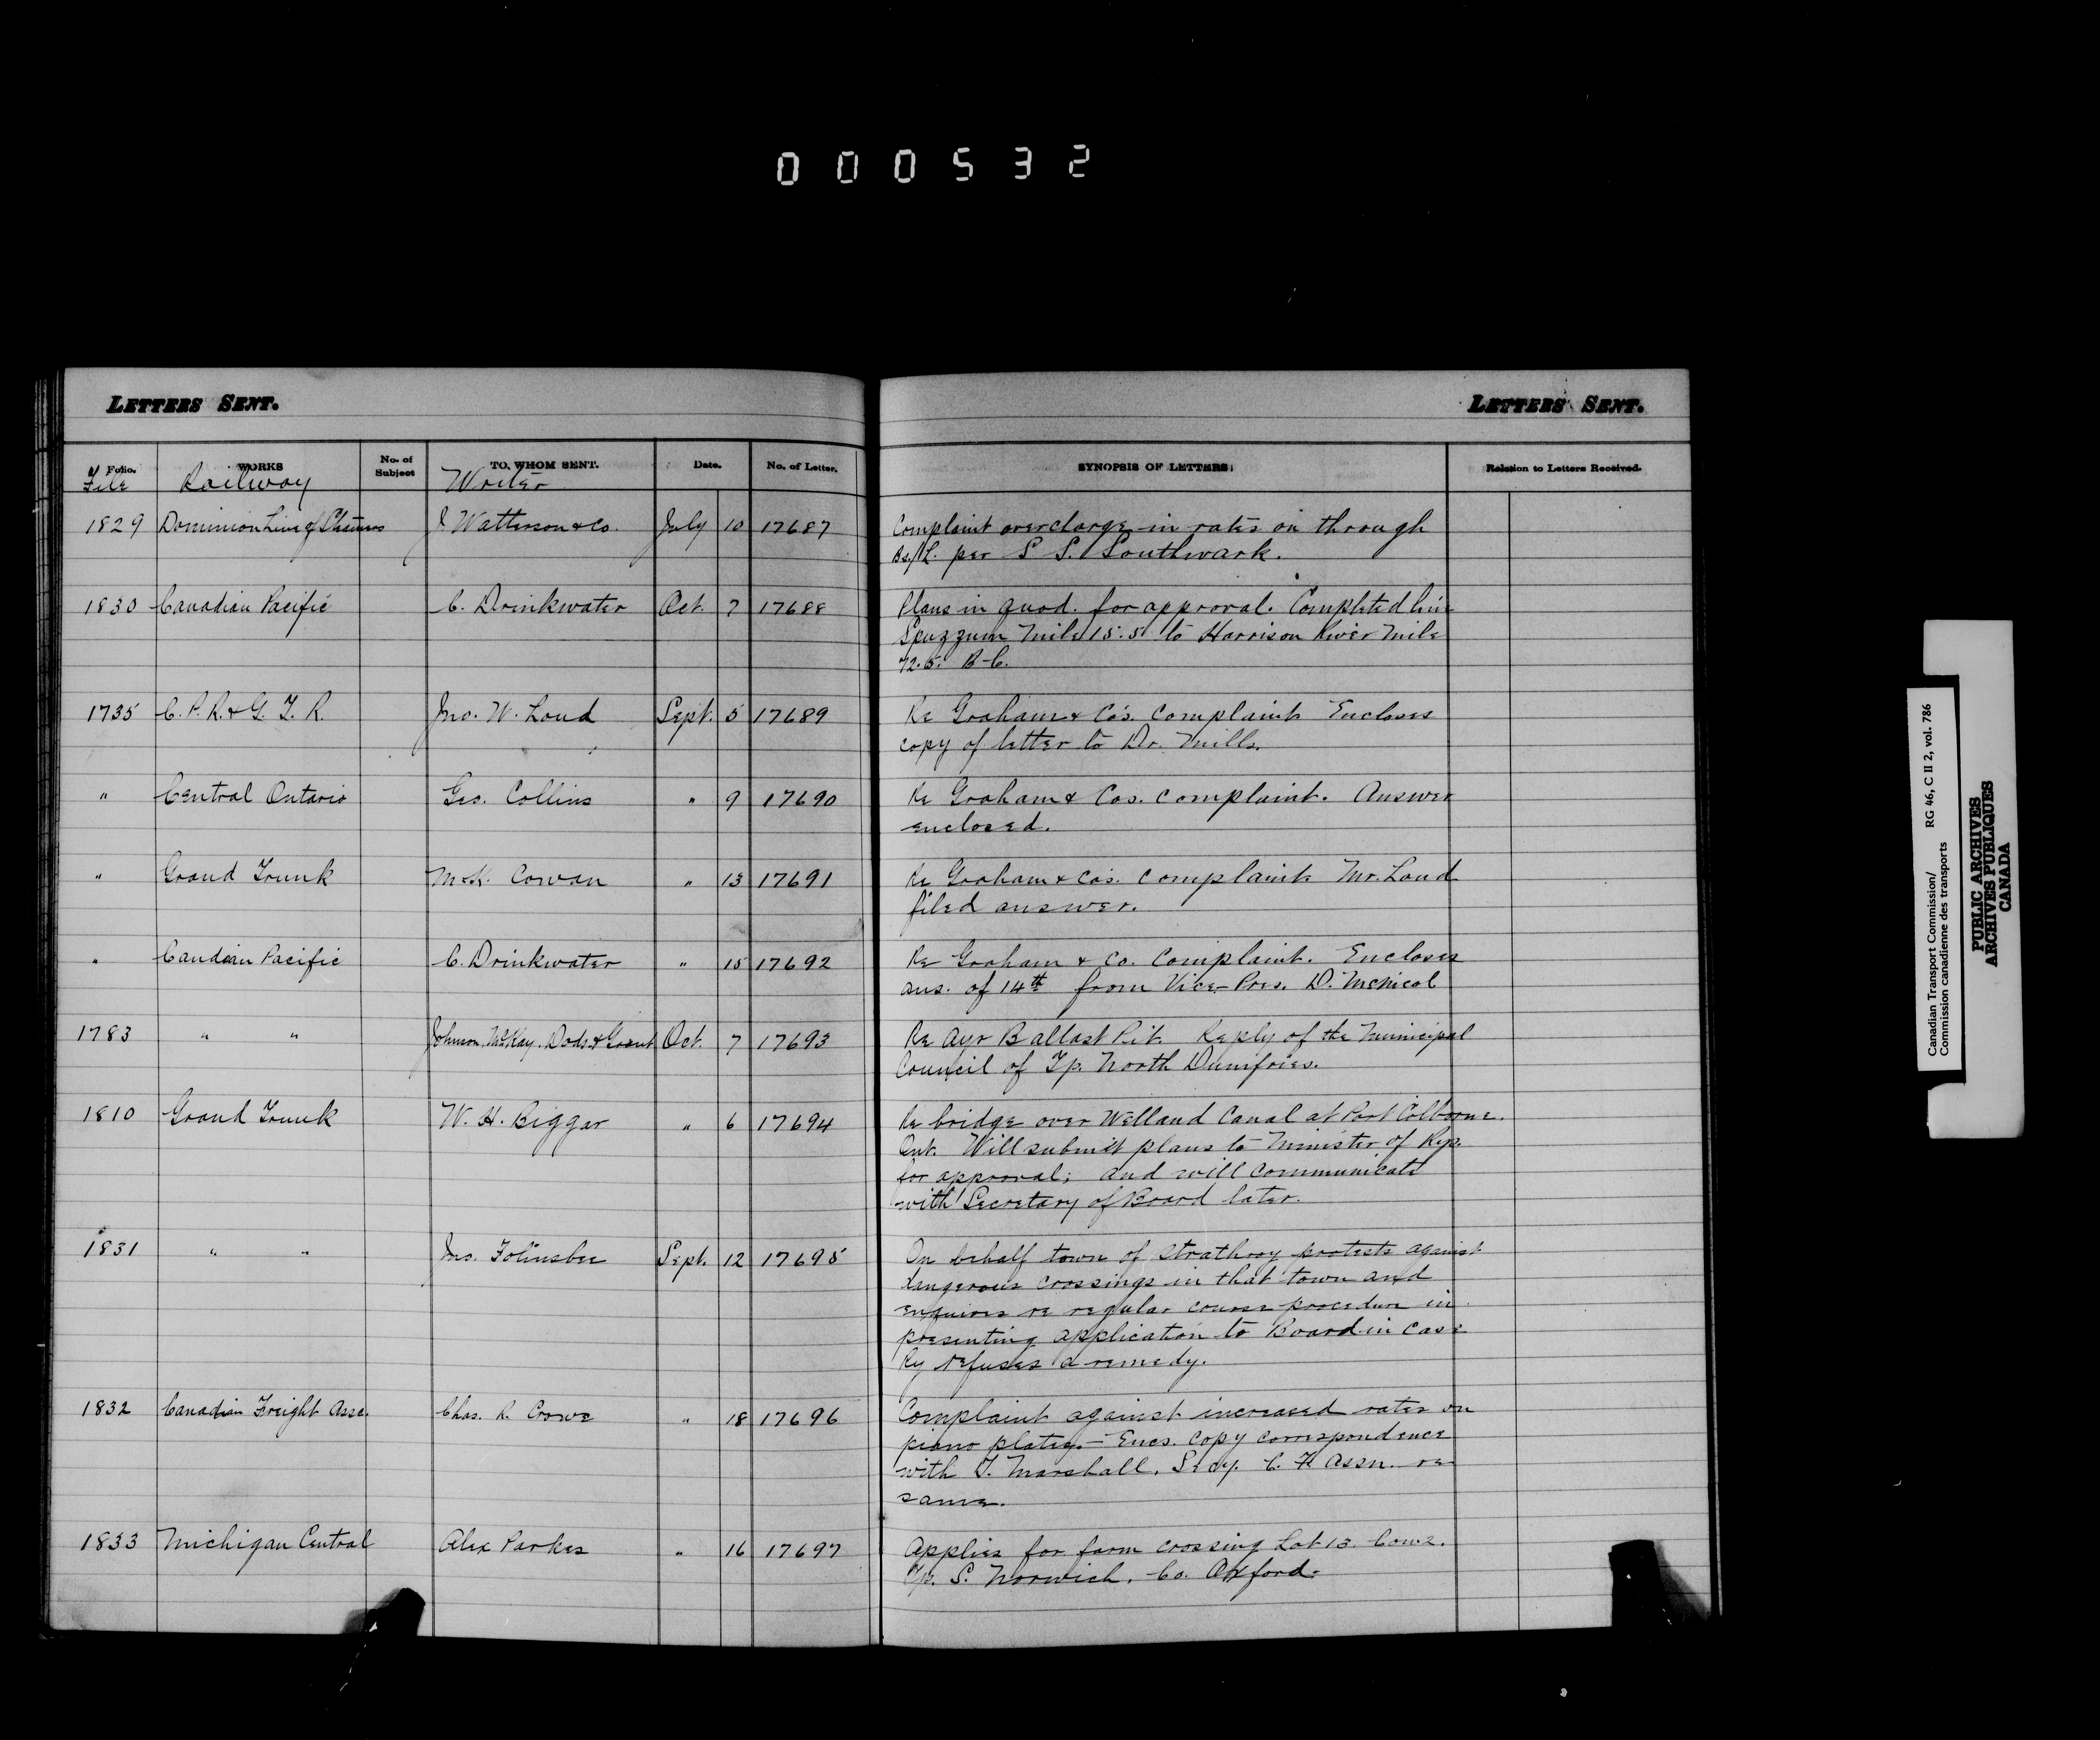 000532
LETTERS SENT.
LETTERS SENT.
Folio. WORKS No. of Subject TO WHOM SENT. Date. No. of Letter. SYNOPSIS OF LETTERS. Relation to Letters Received.
File Railway Writer
1829 Dominion Line of Steamers J. Watterson & Co. July 10 17687 Complaint overcharge in rates on through
Bs/L. per S S. Southwark.
1830 Canadian Pacific C. Drinkwater Oct. 7 17688 Plans in quad. for approval. Completed line
Spuzzum Mile 15.5 to Harrison River Mile
72.5. B.C.
1735 C. P. R. & G. T. R. Jno. W. Loud Sept. 5 17689 Re Graham & Co's. Complaint. Encloses
copy of letter to Dr. Mills.
" Central Ontario Geo. Collins " 9 17690 Re Graham & Cos. complaint. Answer
enclosed.
" Grand Trunk M.K. Cowan " 13 17691 Re Graham & Co's. Complaint. Mr. Loud
filed answer.
" Candian Pacific C. Drinkwater " 15 17692 Re Graham & Co. Complaint. Encloses
ans. of 14th from Vice-Pres. D. McNicol
1783 " " Johnson, McKay, Dods & Grant Oct. 7 17693 Re Ayr Ballast Pit. Reply of the Municipal
Council of Tp. North Dumfries.
1810 Grand Trunk W. H. Biggar " 6 17694 Re bridge over Welland Canal at Port Colborne.
Ont. Will submit plans to Minister of Rys.
for approval; and will communicate
with Secretary of Board later.
1831 " " Jno. Folinsbee Sept. 12 17695 On behalf town of Strathroy protests against
dangerous crossings in that town and
enquires re regular course procedure in
presenting application to Board in case
Ry refuses a remedy.
1832 Canadian Freight Asse. Chas. R. Crowe " 18 17696 Complaint against increased rates on
piano plates. - Encs. copy correspondence
with T. Marshall, Secy. C. F. Assn. re
same.
1833 Michigan Central Alex Parker " 16 17697 Applies for farm crossing Lot 13. Con 2.
Tp. S. Norwich, Co. Oxford.
Canadian Transport Commission/ RG 46, C II 2, vol. 786
Commission canadienne des transports
PUBLIC ARCHIVES
ARCHIVES PUBLIQUES
CANADA